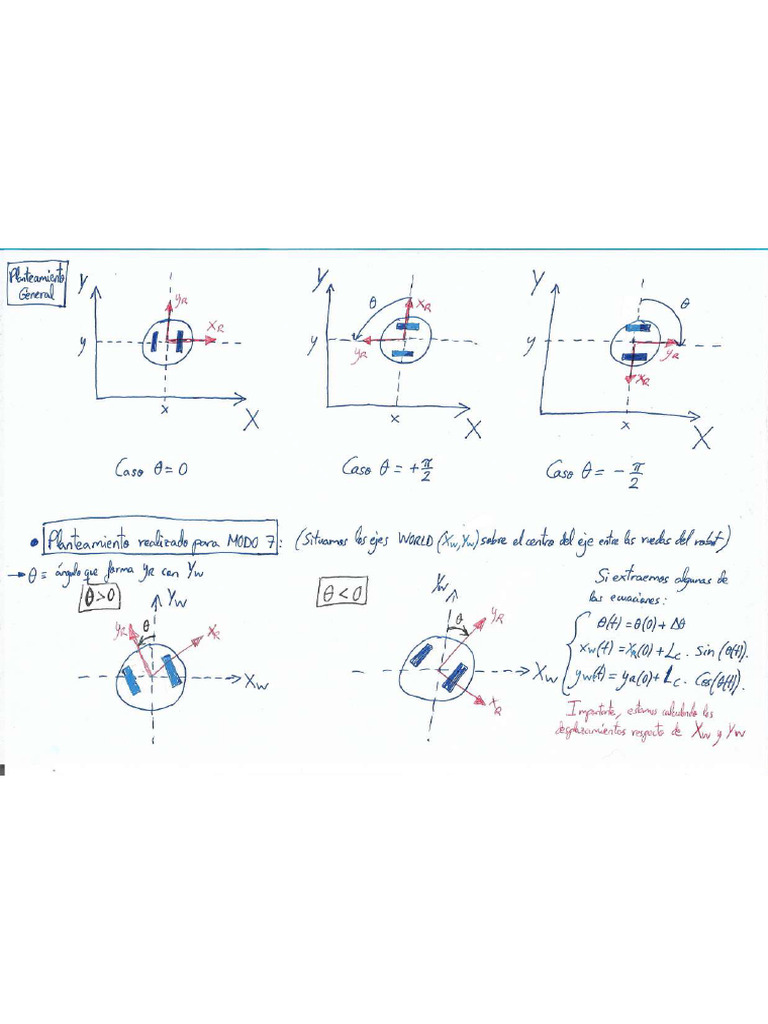 Planteamiento
General
Y
yR
xR
y
x
X
Caso θ = 0
Y
θ
xR
y
yR
x
X
Caso θ = + π/2
Y
θ
y
yR
xR
x
X
Caso θ = - π/2
• Planteamiento realizado para MODO 7: (Situamos los ejes WORLD (Xw, Yw) sobre el centro del eje entre las ruedas del robot)
→ θ = ángulo que forma yR con Yw
θ>0
Yw
θ
yR
xR
Xw
θ<0
Yw
θ
yR
Xw
xR
Si extraemos algunas de
las ecuaciones:
θ(t) = θ(0) + Δθ
xw(t) = xR(0) + Lc . sin(θ(t)).
yw(t) = yR(0) + Lc . Cos(θ(t)).
Importante, estamos calculando los
desplazamientos respecto de Xw y Yw